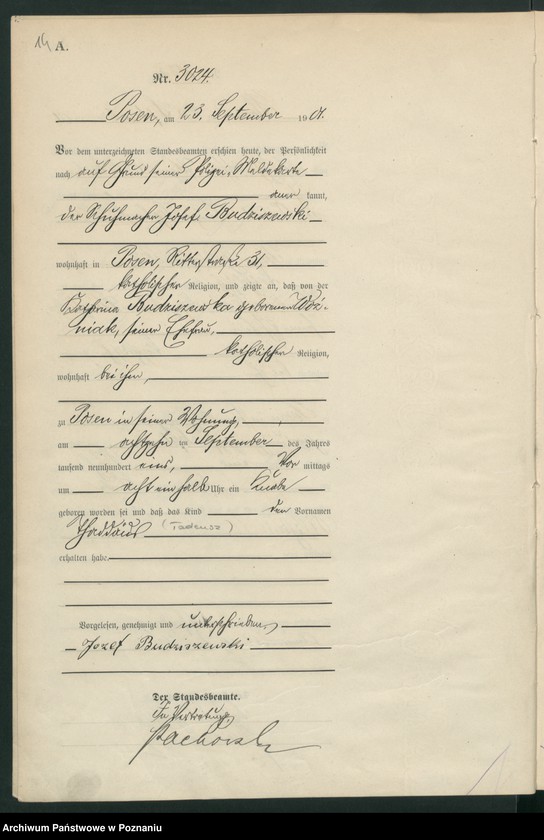 14 A.
Nr. 3024.
Posen, am 23. September 1901.
Vor dem unterzeichneten Standesbeamten erschien heute, der Persönlichkeit
nach auf Grund seiner Polizei-Meldekarte
kannt,
der Schuhmacher Josef Budziszewski
wohnhaft in Posen, Ritterstraße 31,
katholischer Religion, und zeigte an, daß von der
Katharina Budziszewska geborenen Woź-
niak, seiner Ehefrau,
katholischer Religion,
wohnhaft bei ihm,
zu Posen in seiner Wohnung,
am achtzehn ten September des Jahres
tausend neunhundert eins, Vor mittags
um acht ein halb Uhr ein Knabe
geboren worden sei und daß das Kind den Vornamen
Thaddäus (Tadeusz)
erhalten habe.
Vorgelesen, genehmigt und unterschrieben
Jozef Budziszewski
Der Standesbeamte.
In Vertretung
Archiwum Państwowe w Poznaniu